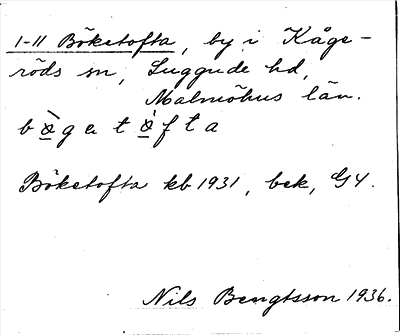 1-11 Böketofta, by i Kåge-
röds sn, Luggude hd,
Malmöhus län.
bø̀gatø̀fta
Böketofta kb 1931, bek, G4.
Nils Bengtsson 1936.